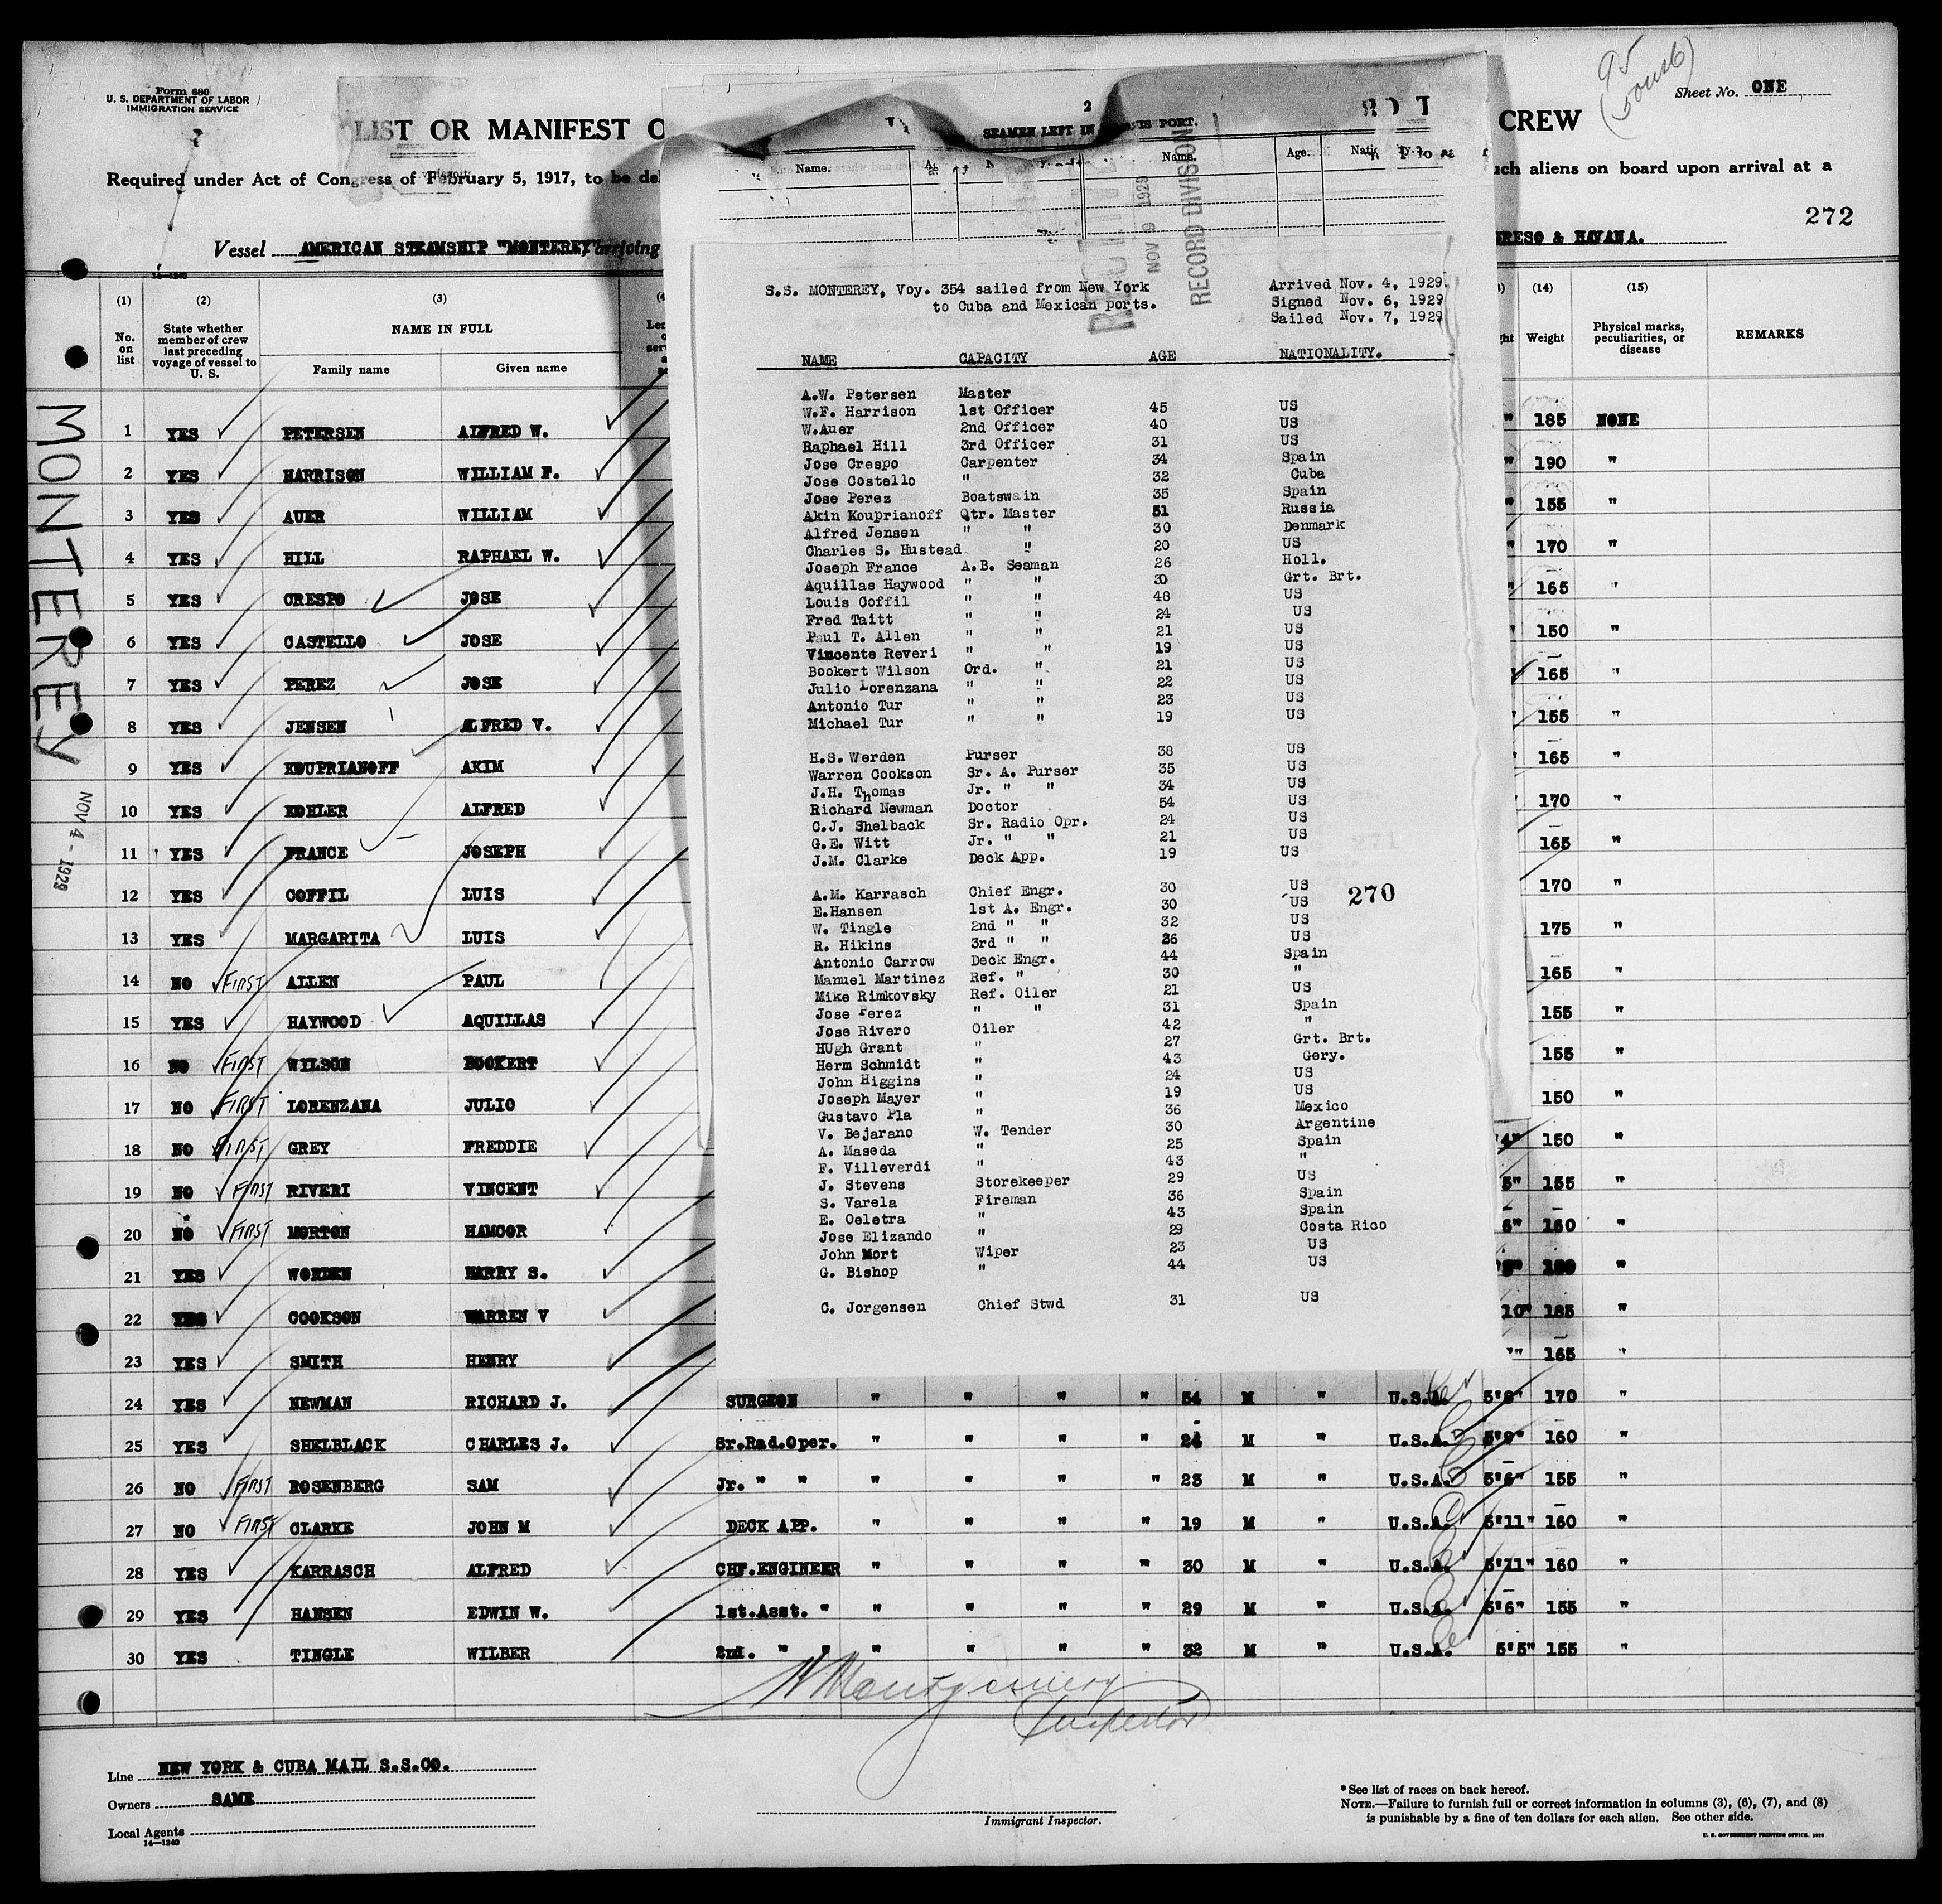 Form 680
U. S. DEPARTMENT OF LABOR
IMMIGRATION SERVICE
95
Sheet No. ONE
LIST OR MANIFEST O
CREW
Required under Act of Congress of February 5, 1917, to be del
uch aliens on board upon arrival at a
272
Vessel AMERICAN STEAMSHIP "MONTEREY" arriving
RESO & HAVANA.
(1) (2) (3)
No. on list
State whether member of crew last preceding voyage of vessel to U. S.
NAME IN FULL
Family name Given name
(14) (15)
Weight
Physical marks, peculiarities, or disease
REMARKS
MONTEREY
NOV 4 - 1929
1 YES PETERSEN ALFRED W. 185 NONE
2 YES HARRISON WILLIAM F. 190 "
3 YES AUER WILLIAM 155 "
4 YES HILL RAPHAEL W. 170 "
5 YES CRESPO JOSE 165 "
6 YES CASTELLO JOSE 150 "
7 YES PEREZ JOSE 165 "
8 YES JENSEN ALFRED V. 155 "
9 YES KOUPRIANOFF AKIM 165 "
10 YES KOHLER ALFRED 170 "
11 YES FRANCE JOSEPH 165 "
12 YES COFFIL LUIS 170 "
13 YES MARGARITA LUIS 175 "
14 NO FIRST ALLEN PAUL 165 "
15 YES HAYWOOD AQUILLAS 155 "
16 NO FIRST WILSON BOOKERT 155 "
17 NO FIRST LORENZANA JULIO 150 "
18 NO FIRST GREY FREDDIE 4" 150 "
19 NO FIRST RIVERI VINCENT 5" 155 "
20 NO FIRST MORTON HAMCOR 6" 160 "
21 YES WORDEN HARRY S. "
22 YES COOKSON WARREN V 10" 185 "
23 YES SMITH HENRY 165 "
24 YES NEWMAN RICHARD J. SURGEON " " " " 54 M " U.S.A. 5'8" 170 "
25 YES SHELBLACK CHARLES J. Sr.Rad.Oper. " " " " 24 M " U.S.A. 5'9" 160 "
26 NO FIRST ROSENBERG SAM Jr. " " " " " " 23 M " U.S.A. 5'6" 155 "
27 NO FIRST CLARKE JOHN M DECK APP. " " " " 19 M " U.S.A. 5'11" 160 "
28 YES KARRASCH ALFRED CHF.ENGINEER " " " " 30 M " U.S.A. 5'11" 160 "
29 YES HANSEN EDWIN W. 1st.Asst. " " " " " 29 M " U.S.A. 5'6" 155 "
30 YES TINGLE WILBER 2nd. " " " " " " 32 M " U.S.A. 5'5" 155 "
Montgomery
Inspector
Line NEW YORK & CUBA MAIL S.S.CO.
Owners SAME
Local Agents
14—1240
Immigrant Inspector.
* See list of races on back hereof.
NOTE.—Failure to furnish full or correct information in columns (3), (6), (7), and (8)
is punishable by a fine of ten dollars for each alien. See other side.
U. S. GOVERNMENT PRINTING OFFICE: 1929
2
SEAMEN LEFT IN THIS PORT.
Name. Name. Age.
NOV 9 1929
RECORD DIVISION
S.S. MONTEREY, Voy. 354 sailed from New York
to Cuba and Mexican ports.
Arrived Nov. 4, 1929.
Signed Nov. 6, 1929
Sailed Nov. 7, 1929
NAME CAPACITY AGE NATIONALITY.
A.W. Petersen Master
W.F. Harrison 1st Officer 45 US
W.Auer 2nd Officer 40 US
Raphael Hill 3rd Officer 31 US
Jose Crespo Carpenter 34 Spain
Jose Costello " 32 Cuba
Jose Perez Boatswain 35 Spain
Akin Kouprianoff Qtr. Master 51 Russia
Alfred Jensen " " 30 Denmark
Charles S. Hustead " 20 US
Joseph France A.B. Seaman 26 Holl.
Aquillas Haywood " " 30 Grt. Brt.
Louis Coffil " " 48 US
Fred Taitt " " 24 US
Paul T. Allen " " 21 US
Vincente Reveri " " 19 US
Bookert Wilson Ord. " 21 US
Julio Lorenzana " " 22 US
Antonio Tur " " 23 US
Michael Tur " " 19 US
H.S. Werden Purser 38 US
Warren Cookson Sr. A. Purser 35 US
J.H. Thomas Jr. " " 34 US
Richard Newman Doctor 54 US
C.J. Shelback Sr. Radio Opr. 24 US
G.E. Witt Jr. " " 21 US
J.M. Clarke Deck App. 19 US
271
A.M. Karrasch Chief Engr. 30 US
E.Hansen 1st A. Engr. 30 US
270
W. Tingle 2nd " " 32 US
R. Hikins 3rd " " 26 US
Antonio Carrow Deck Engr. 44 Spain
Manuel Martinez Ref. " 30 "
Mike Rimkovsky Ref. Oiler 21 US
Jose Perez " " 31 Spain
Jose Rivero Oiler 42 "
HUgh Grant " 27 Grt. Brt.
Herm Schmidt " 43 Gery.
John Higgins " 24 US
Joseph Mayer " 19 US
Gustavo Pla " 36 Mexico
V. Bejarano W. Tender 30 Argentine
A. Maseda " 25 Spain
F. Villeverdi " 43 "
J. Stevens Storekeeper 29 US
S. Varela Fireman 36 Spain
E. Oeletra " 43 Spain
Jose Elizando " 29 Costa Rico
John Mort Wiper 23 US
G. Bishop " 44 US
C. Jorgensen Chief Stwd 31 US